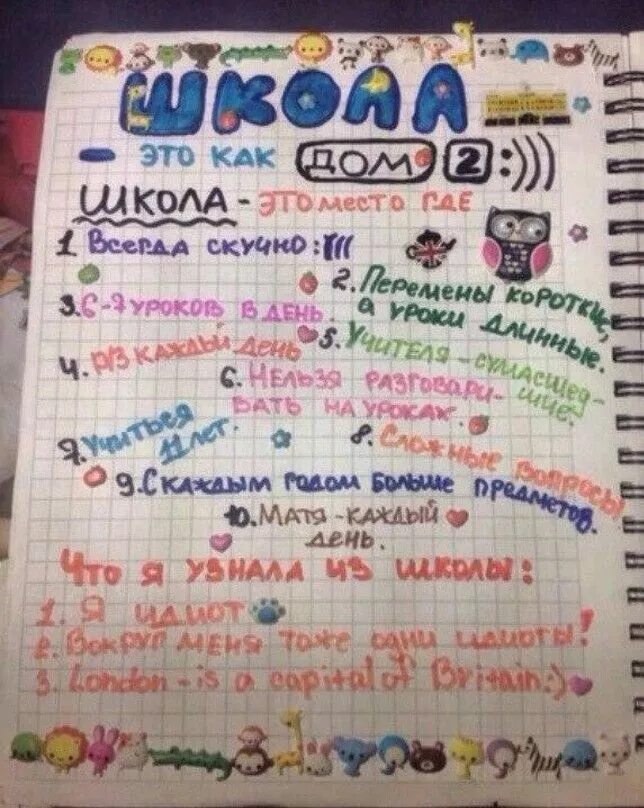 ШКОЛА
- ЭТО КАК ДОМ 2:)))
ШКОЛА - ЭТО МЕСТО ГДЕ
1 Всегда скучно:(((
2. Перемены короткие,
а уроки длинные.
3. 6-7 уроков в день
4. Д/З каждый день
5. Учителя - сумасшед-
шие.
6. Нельзя разговари-
вать на уроках.
7. Учиться
11 лет.
8. Сложные вопросы
9. С каждым годом больше предметов.
10. Матя - каждый
день.
Что я узнала из школы:
1. Я идиот
2. Вокруг меня тоже одни идиоты!
3. London - is a capital of Britain:)